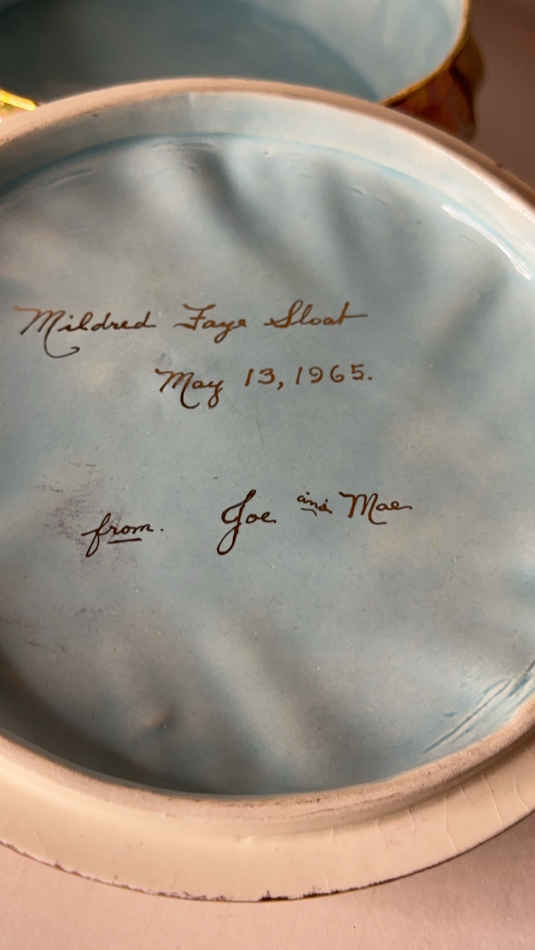 Mildred Faye Sloat
May 13, 1965.
from. Joe and Mae